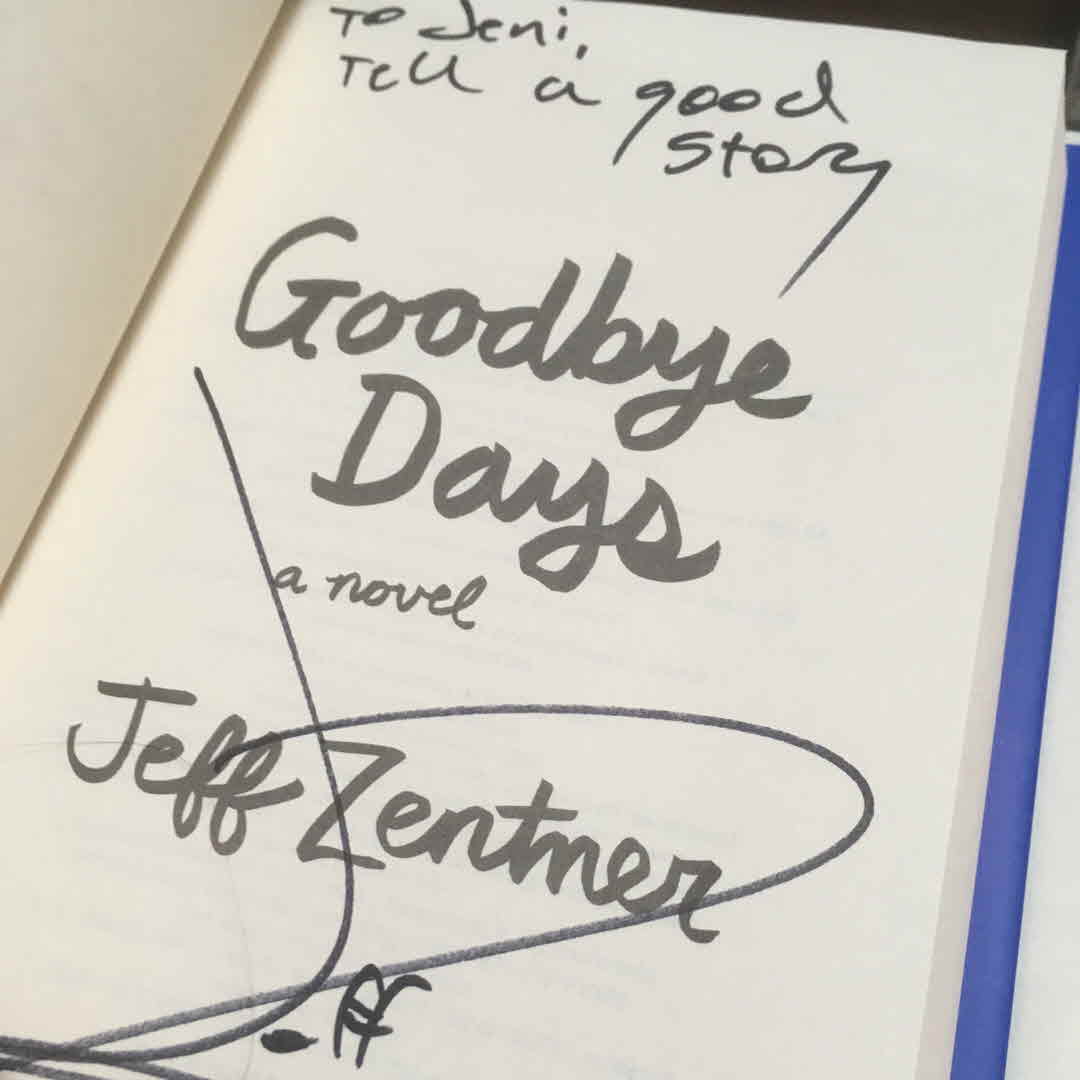 To Jeni,
Tell a good
story
Goodbye
Days
a novel
Jeff Zentner